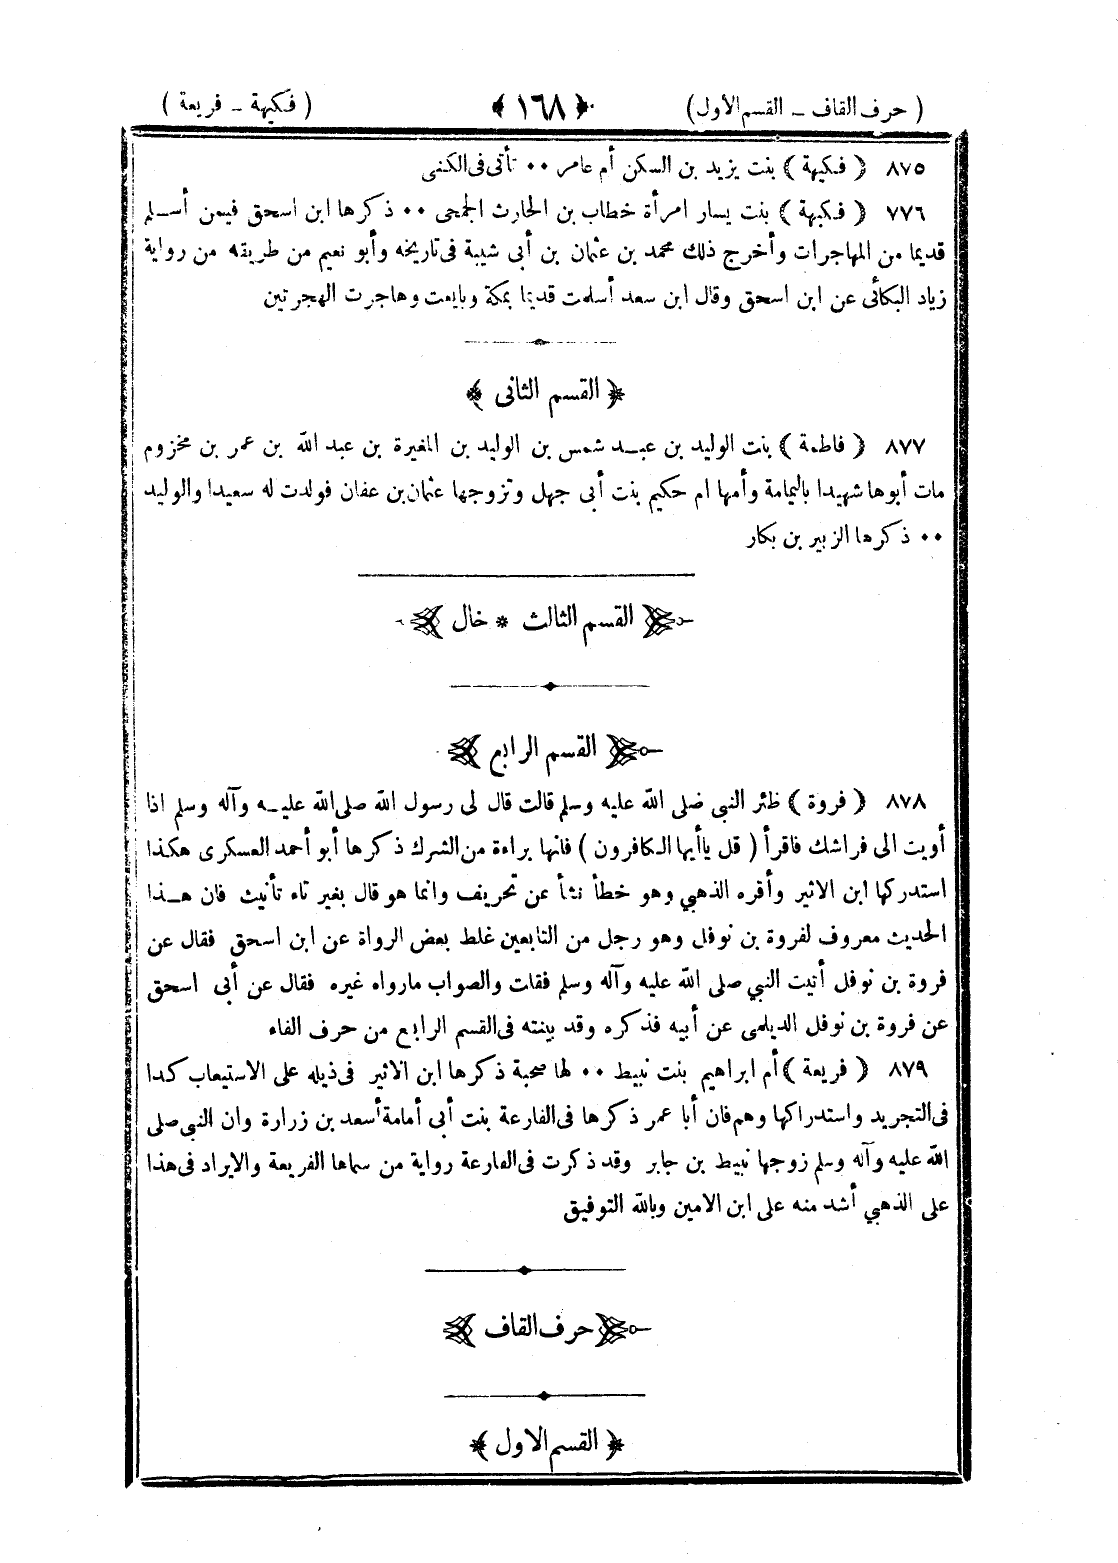 ( حرف القاف ـ القسم الأول) ﴿ ١٦٨ ﴾ ( فكيهة ـ فريعة )
٨٧٥ ( فكيهة ) بنت يزيد بن السكن أم عامر ٠٠ تأتى فى الكنى
٧٧٦ ( فكيهة ) بنت يسار امرأة خطاب بن الحارث الجمحى ٠٠ ذكرها ابن اسحق فيمن أسـلم
قديما من المهاجرات وأخرج ذلك محمد بن عثمان بن أبى شيبة فى تاريخه وأبو نعيم من طريقه من رواية
زياد البكائى عن ابن اسحق وقال ابن سعد أسلمت قديما بمكة وبايعت وهاجرت الهجرتين
﴿ القسم الثانى ﴾
٨٧٧ ( فاطمة ) بنت الوليد بن عبـد شمس بن الوليد بن المغيرة بن عبد الله بن عمر بن مخزوم
مات أبوها شهيدا باليمامة وأمها ام حكيم بنت أبى جهل وتزوجها عثمان بن عفان فولدت له سعيدا والوليد
٠٠ ذكرها الزبير بن بكار
القسم الثالث * خال
القسم الرابع
٨٧٨ ( فروة ) ظئر النبي ضلى الله عليه وسلم قالت قال لى رسول الله صلى الله عليـه وآله وسلم اذا
أويت الى فراشك فاقرأ ( قل ياأيها الكافرون ) فانها براءة من الشرك ذكرها أبو أحمد العسكرى هكذا
استدركها ابن الاثير وأقره الذهبي وهو خطأ نشأ عن تحريف وانما هو قال بغير تاء تأنيث فان هـذا
الحديث معروف لفروة بن نوفل وهو رجل من التابعين غلط بعض الرواة عن ابن اسحق فقال عن
فروة بن نوفل أتيت النبي صلى الله عليه وآله وسلم فقلت والصواب مارواه غيره فقال عن أبى اسحق
عن فروة بن نوفل الديلمى عن أبيه فذكره وقد بينته فى القسم الرابع من حرف الفاء
٨٧٩ ( فريعة ) أم ابراهيم بنت نبيط ٠٠ لها صحبة ذكرها ابن الاثير فى ذيله على الاستيعاب كذا
فى التجريد واستدراكها وهم فان أبا عمر ذكرها فى الفارعة بنت أبى أمامة أسعد بن زرارة وان النبي صلى
الله عليه وآله وسلم زوجها نبيط بن جابر وقد ذكرت فى الفارعة رواية من سماها الفريعة والايراد فى هذا
على الذهبي أشد منه على ابن الامين وبالله التوفيق
حرف القاف
﴿ القسم الاول ﴾